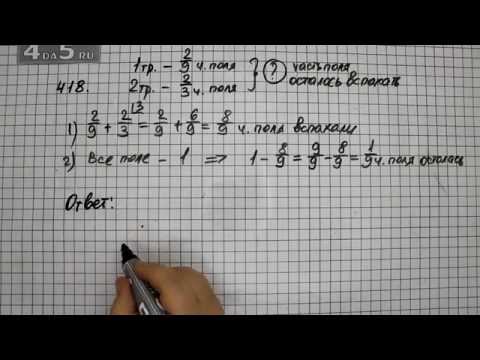 4DA5.RU
1тр. – 2/9 ч. поля } ? часть поля
418. 2тр. – 2/3 ч. поля осталось вспахать
1) 2/9 + 2/3^3 = 2/9 + 6/9 = 8/9 ч. поля вспахали
2) Все поле – 1 => 1 - 8/9 = 9/9 - 8/9 = 1/9 ч. поля осталась
Ответ: